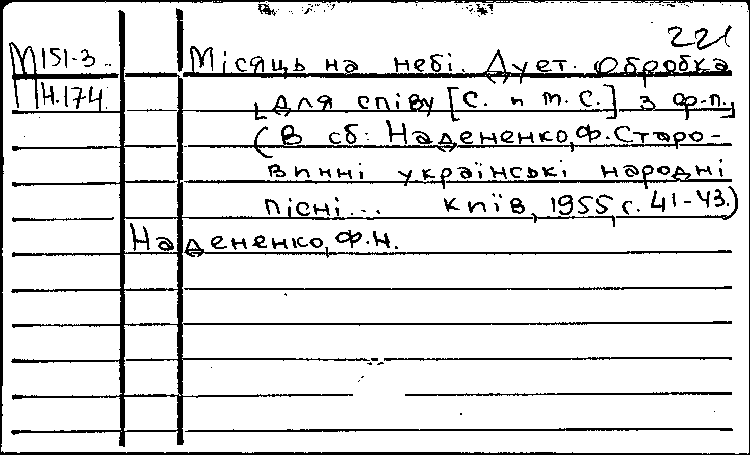 221
М151-3 Місяць на небі. Дует. Обробка
Н.174 для співу [С. и т. С.] з ф-п.
(В сб: Надененко, Ф. Старо-
винні українські народні
пісні... Київ, 1955, с. 41-43.)
Надененко, Ф.Н.